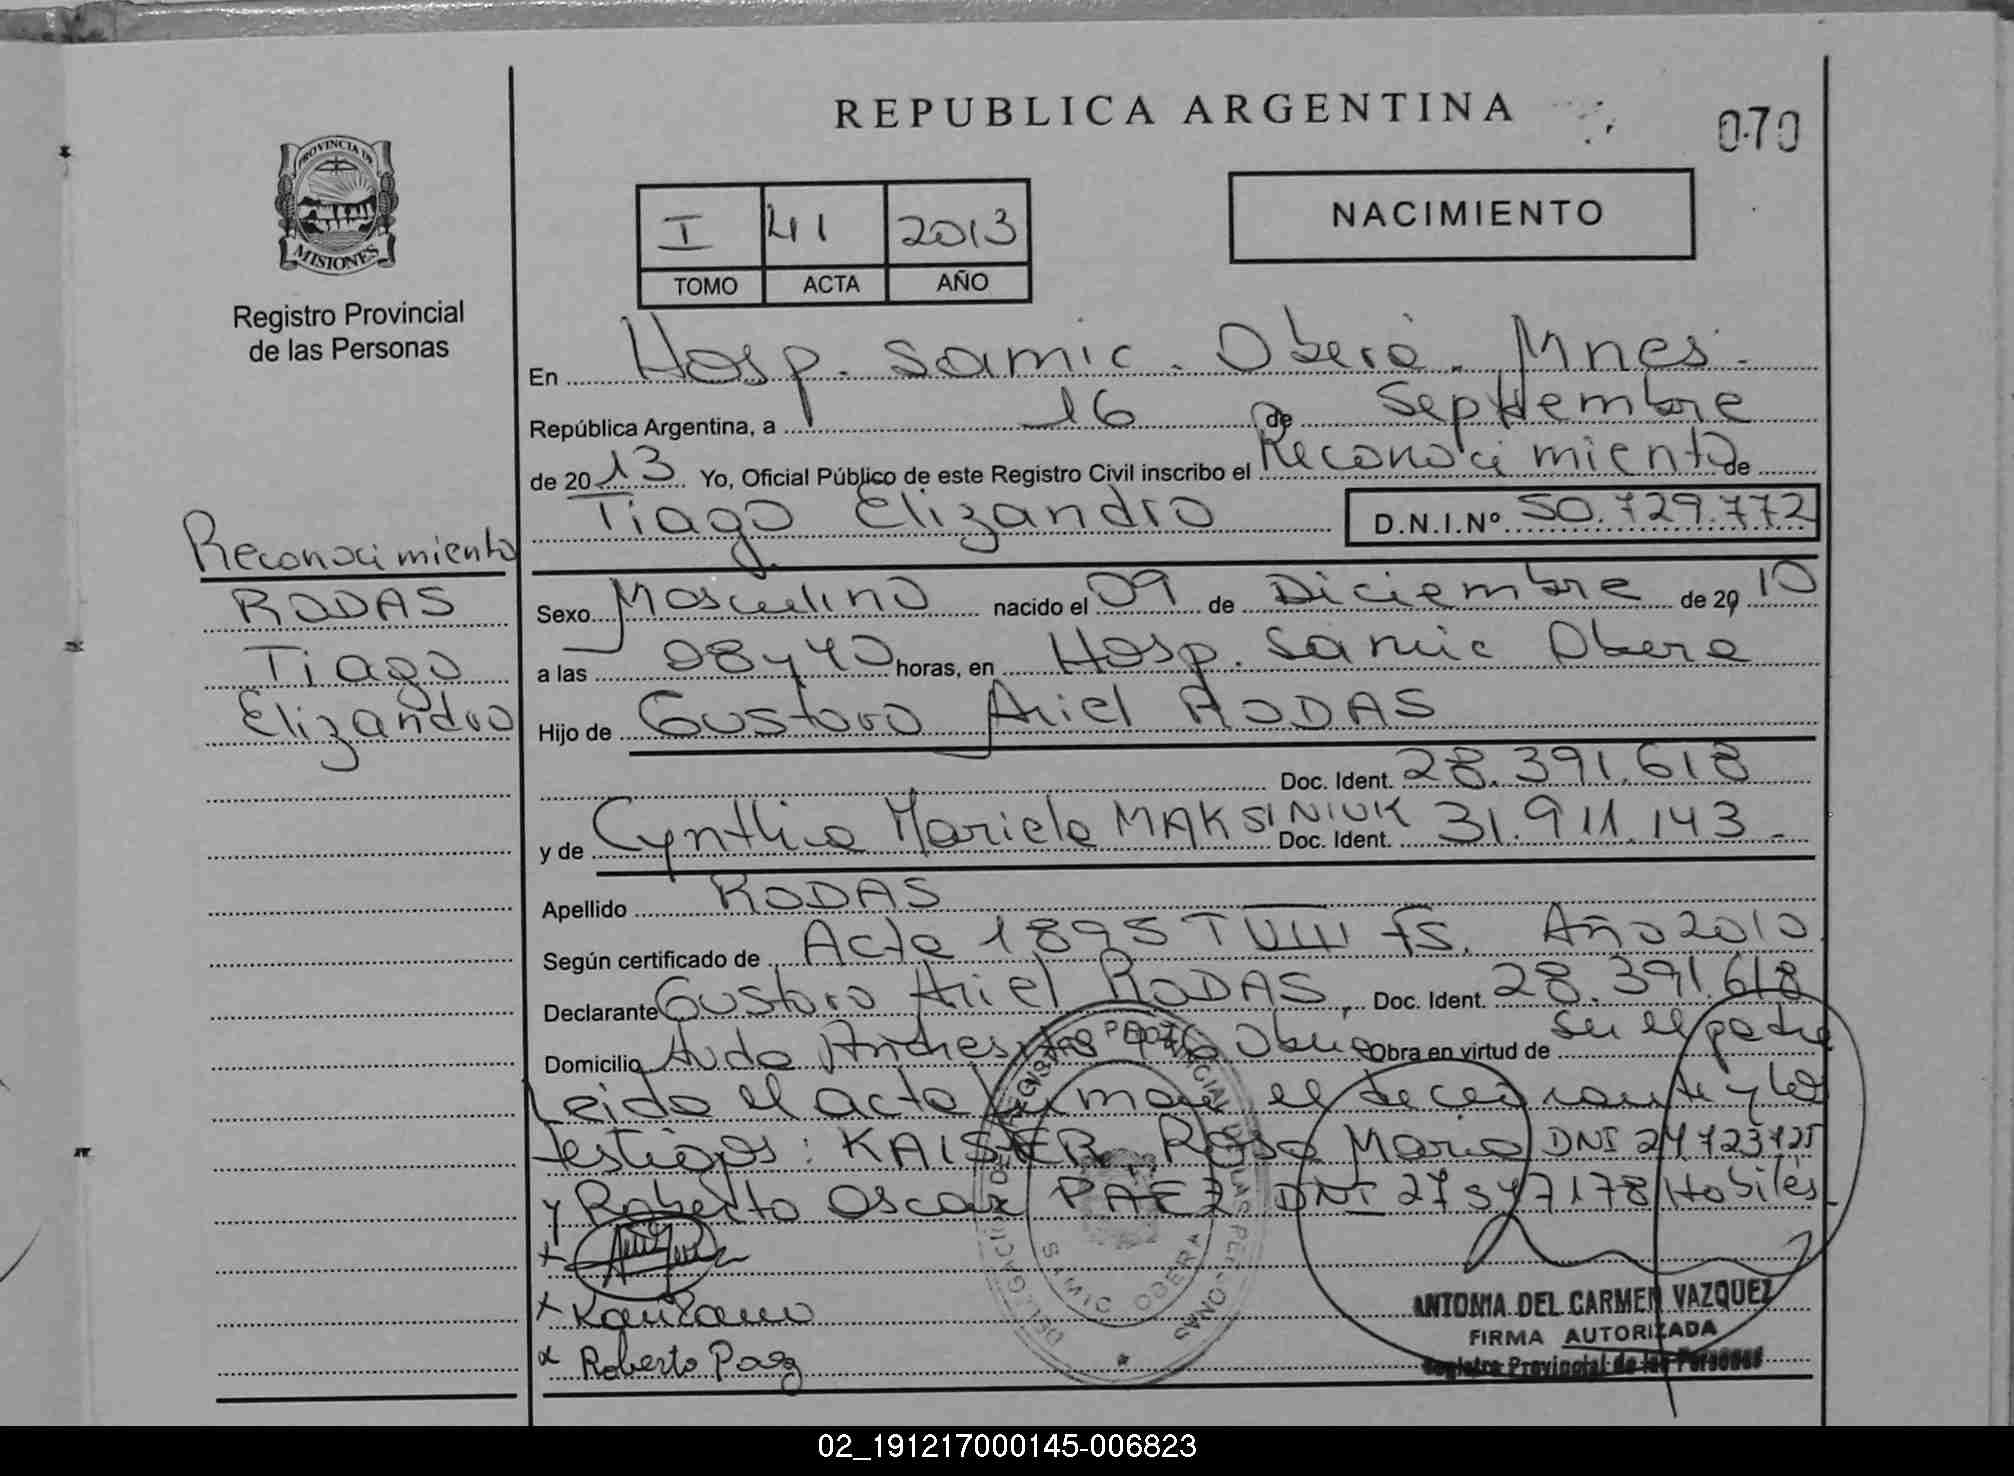 REPUBLICA ARGENTINA
070
PROVINCIA DE
MISIONES
Registro Provincial
de las Personas
I 41 2013
TOMO ACTA AÑO
NACIMIENTO
En Hosp. Samic. Oberá. Mnes.
República Argentina, a 16 de Septiembre
de 2013 Yo, Oficial Público de este Registro Civil inscribo el Reconocimiento de
Tiago Elizandro D.N.I.Nº 50.729.772
Reconocimiento
RODAS
Tiago
Elizandro
Sexo Masculino nacido el 09 de Diciembre de 2010
a las 08 y 40 horas, en Hosp. Samic Obera
Hijo de Gustavo Ariel RODAS
Doc. Ident. 28.391.618
y de Cynthia Mariela MAKSINIUK Doc. Ident. 31.911.143.-
Apellido RODAS
Según certificado de Acta 1895 T VIII fs. Año 2010
Declarante Gustavo Ariel RODAS, Doc. Ident. 28.391.618
Domicilio Avda Andresito Obera Obra en virtud de ser el padre
Leida el acta firman el declarante y los
testigos: KAISER, Rosa Maria DNI 24723725
y Roberto Oscar PAEZ DNI 27547178 Habiles
x
x
x Roberto Paez
DELEGACION REGISTRO PROVINCIAL DE LAS PERSONAS
SAMIC OBERA
ANTONIA DEL CARMEN VAZQUEZ
FIRMA AUTORIZADA
Registro Provincial de las Personas
02_191217000145-006823